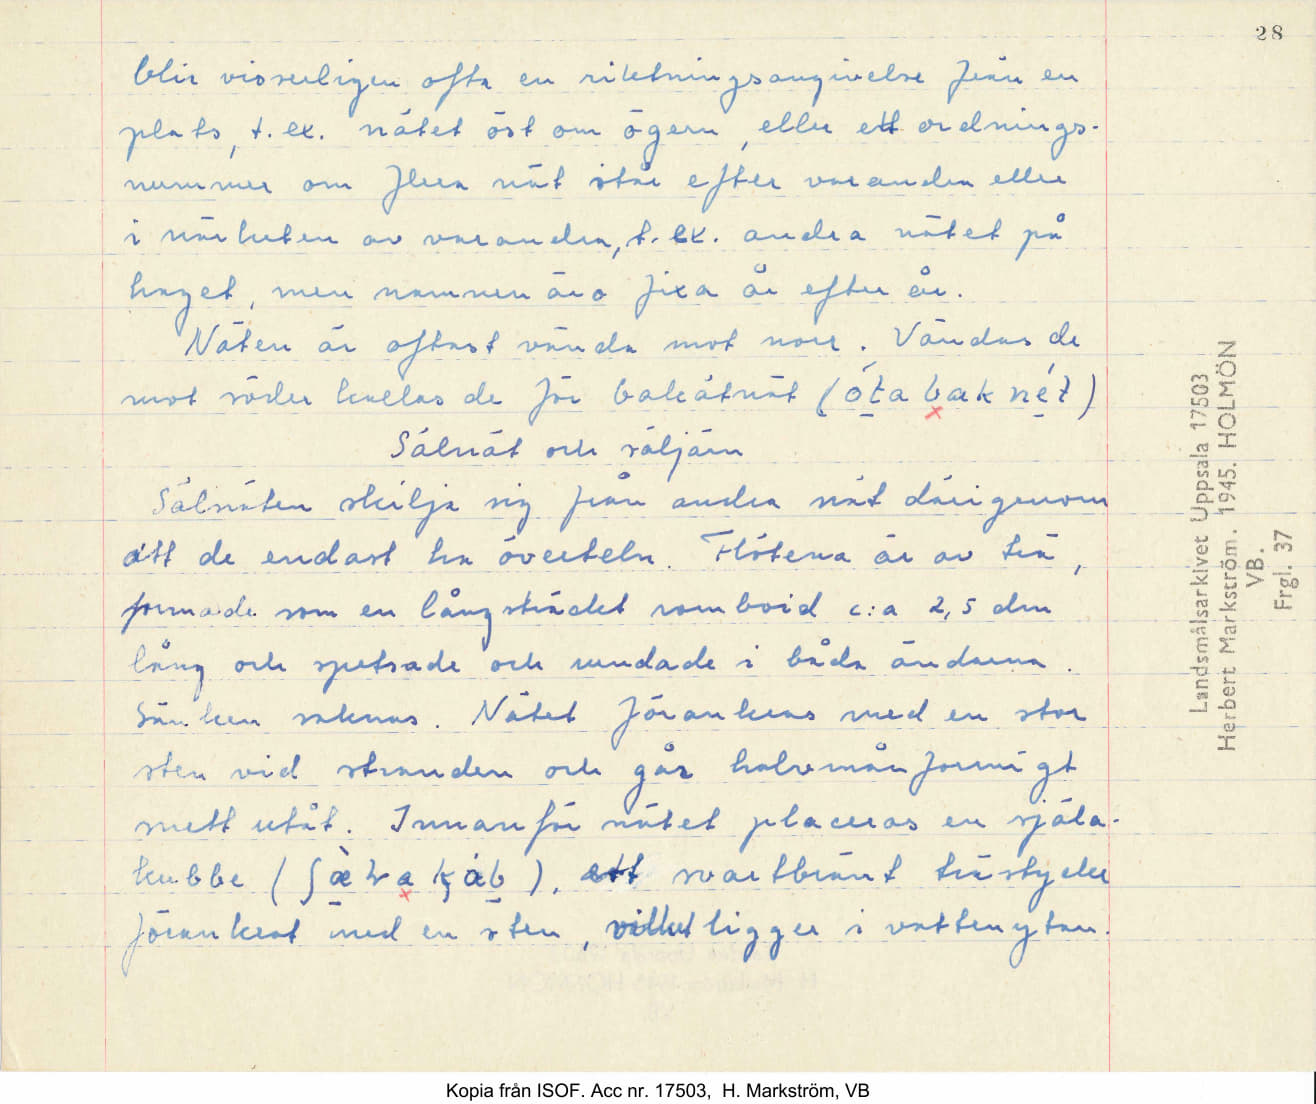 28
blir visserligen ofta en riktningsangivelse från en
plats, t. ex. nätet öst om ögern, eller ett ordnings-
nummer om flera nät står efter varandra eller
i närheten av varandra, t. ex. andra nätet på
haget, men namnen äro fixa år efter år.
Näten är oftast vända mot norr. Vändas de
mot söder kallas de för bakåtnät (
Sälnät och säljärn
Sälnäten skilja sig från andra nät därigenom
att de endast ha överteln. Flötena är av trä,
formade som en långsträckt romboid c:a 2,5 dm
lång och spetsade och rundade i båda ändarna.
Sänken saknas. Nätet förankras med en stor
sten vid stranden och går halvmånformigt
rnett utåt. Innanför nätet placeras en själa-
kubbe (          ), ett svartbränt trästycke
förankrat med en sten, vilket ligger i vattenytan.
Landsmålsarkivet Uppsala 17503
Herbert Markström. 1945. HOLMÖN
VB.
Frgl. 37
Kopia från ISOF. Acc nr. 17503, H. Markström, VB